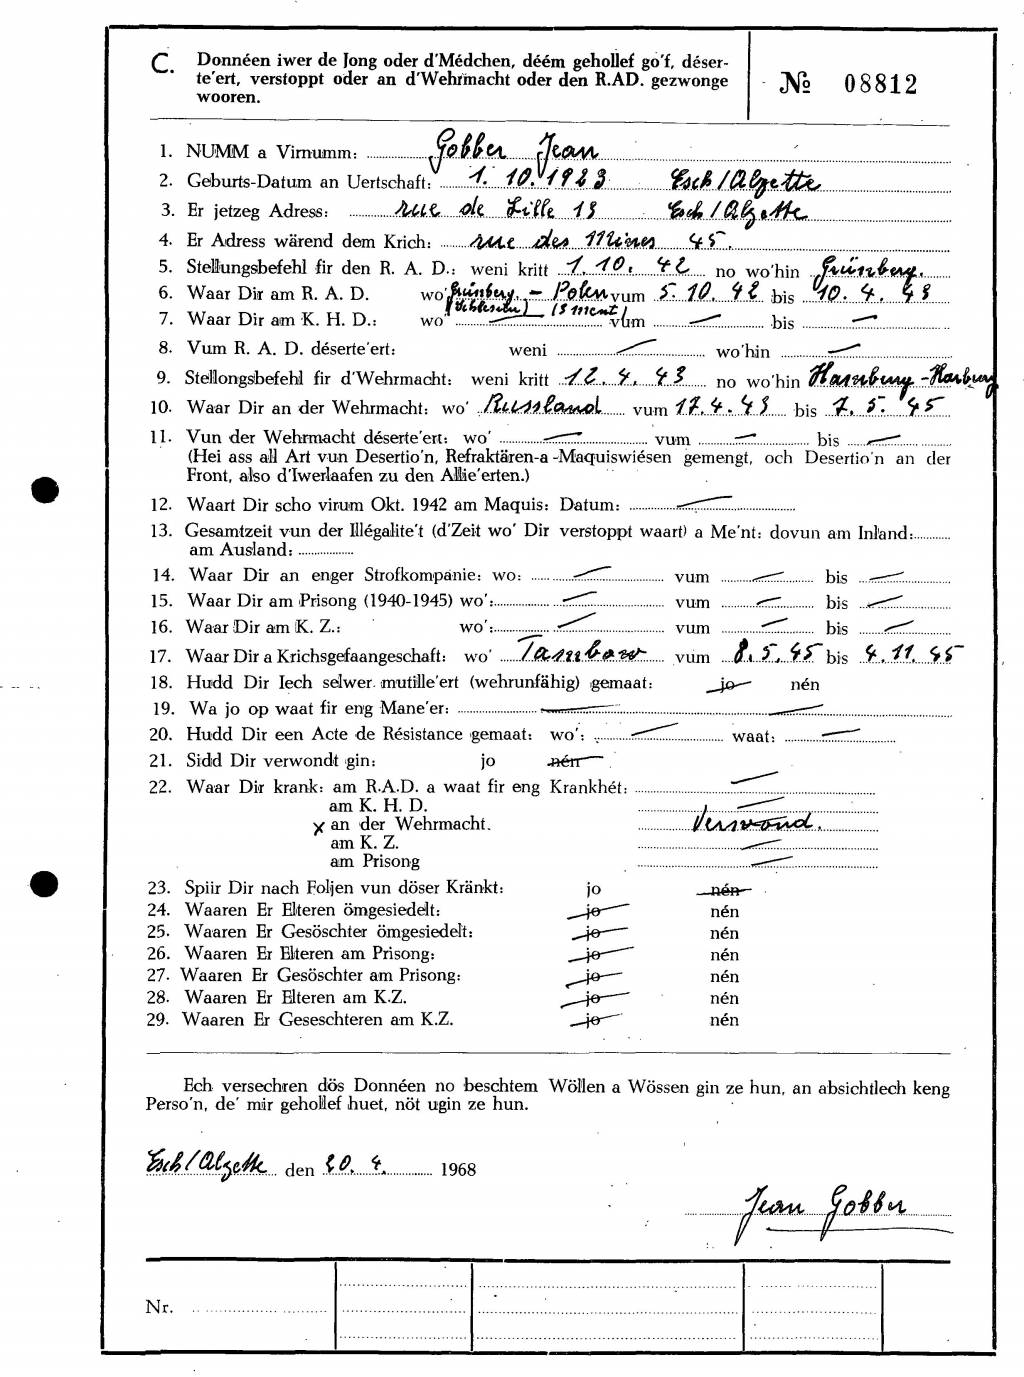 C. Donnéen iwer de Jong oder d'Médchen, déém gehollef go'f, déser-
te'ert, verstoppt oder an d'Wehrmacht oder den R.AD. gezwonge
wooren.
№ 08812
1. NUMM a Virnumm: Gobber Jean
2. Geburts-Datum an Uertschaft: 1. 10. 1923 Esch/Alzette
3. Er jetzeg Adress: rue de Lille 13 Esch/Alzette
4. Er Adress wärend dem Krich: rue des Mines 45.
5. Stellungsbefehl fir den R. A. D.: weni kritt 1. 10. 42 no wo'hin Grünberg.
6. Waar Dir am R. A. D. wo' Grünberg. - Polen vum 5. 10. 42 bis 10. 4. 43
(Schlesien)
7. Waar Dir am K. H. D.: wo' — vum — bis —
8. Vum R. A. D. déserte'ert: weni — wo'hin —
9. Stellongsbefehl fir d'Wehrmacht: weni kritt 12. 4. 43 no wo'hin Hamburg-Harburg
10. Waar Dir an der Wehrmacht: wo' Russland vum 17. 4. 43 bis 7. 5. 45
11. Vun der Wehrmacht déserte'ert: wo' — vum — bis —
(Hei ass all Art vun Desertio'n, Refraktären-a -Maquiswiésen gemengt, och Desertio'n an der
Front, also d'Iwerlaafen zu den Allie'erten.)
12. Waart Dir scho virum Okt. 1942 am Maquis: Datum: —
13. Gesamtzeit vun der Illégalite't (d'Zeit wo' Dir verstoppt waart) a Me'nt: dovun am Inland:
am Ausland:
14. Waar Dir an enger Strofkompanie: wo: — vum — bis —
15. Waar Dir am Prisong (1940-1945) wo': — vum — bis —
16. Waar Dir am K. Z.: wo': — vum — bis —
17. Waar Dir a Krichsgefaangeschaft: wo' Tambow vum 8. 5. 45 bis 4. 11. 45
18. Hudd Dir Iech selwer mutille'ert (wehrunfähig) gemaat: jo nén
19. Wa jo op waat fir eng Mane'er: —
20. Hudd Dir een Acte de Résistance gemaat: wo': — waat: —
21. Sidd Dir verwondt gin: jo nén
22. Waar Dir krank: am R.A.D. a waat fir eng Krankhét: —
am K. H. D. —
x an der Wehrmacht. Verwond.
am K. Z. —
am Prisong —
23. Spiir Dir nach Foljen vun döser Kränkt: jo nén
24. Waaren Er Elteren ömgesiedelt: jo nén
25. Waaren Er Gesöschter ömgesiedelt: jo nén
26. Waaren Er Elteren am Prisong: jo nén
27. Waaren Er Gesöschter am Prisong: jo nén
28. Waaren Er Elteren am K.Z. jo nén
29. Waaren Er Geseschteren am K.Z. jo nén
Ech versechren dös Donnéen no beschtem Wöllen a Wössen gin ze hun, an absichtlech keng
Perso'n, de' mir gehollef huet, nöt ugin ze hun.
Esch/Alzette den 20. 4. 1968
Jean Gobber
Nr.